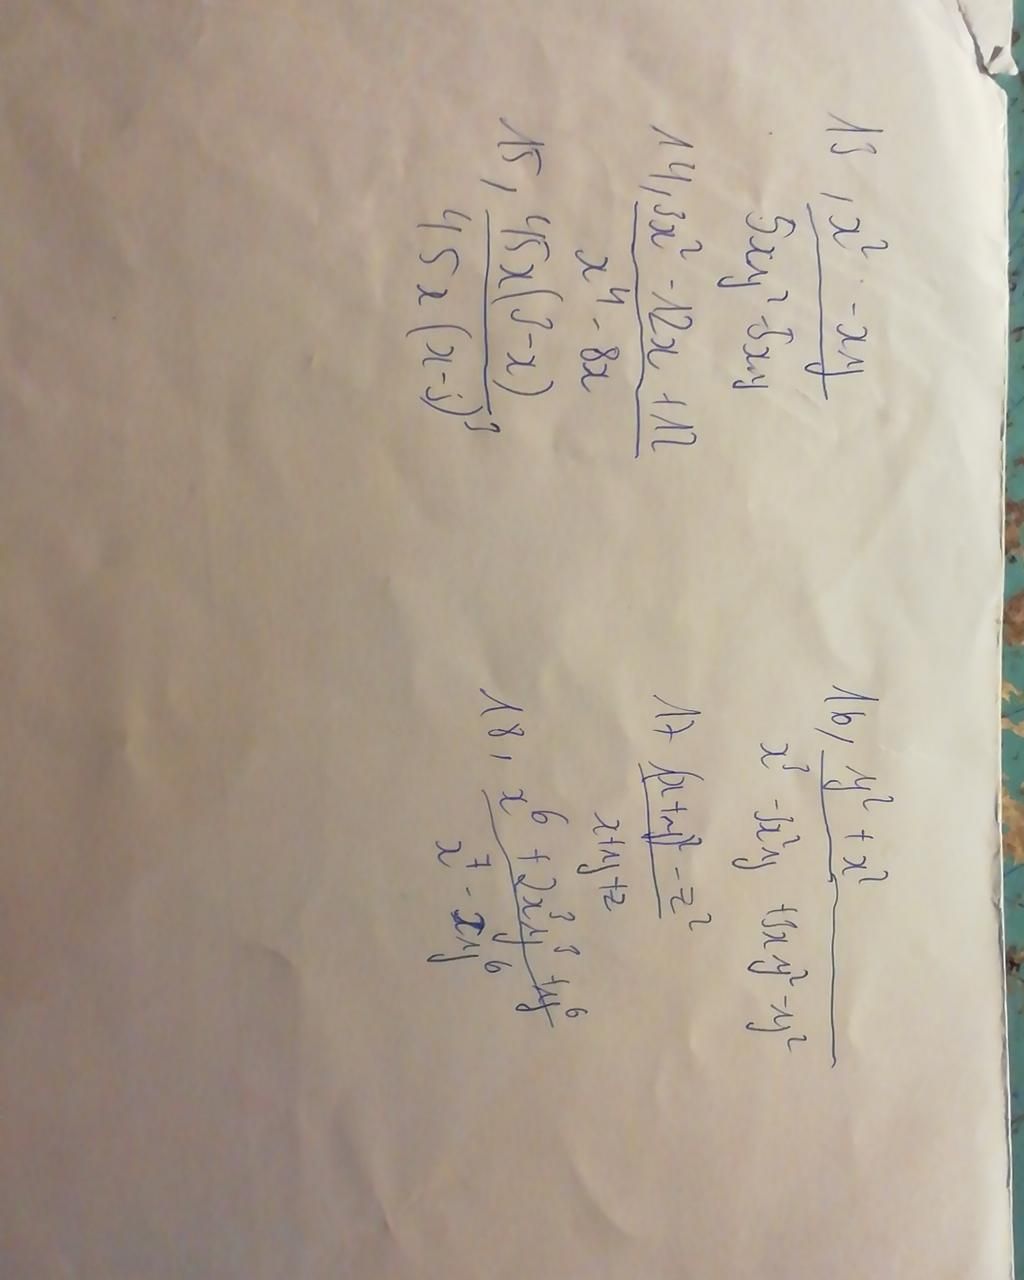 13, x² - xy
5xy² - 5xy
14, 3x² - 12x + 12
x⁴ - 8x
15, 45x(3-x)
45x(x-3)³
16, y² + x²
x³ - 3x²y + 3xy² - y²
17 (x+y)² - z²
x+y+z
18, x⁶ + 2x³y³ + y⁶
x⁷ - xy⁶